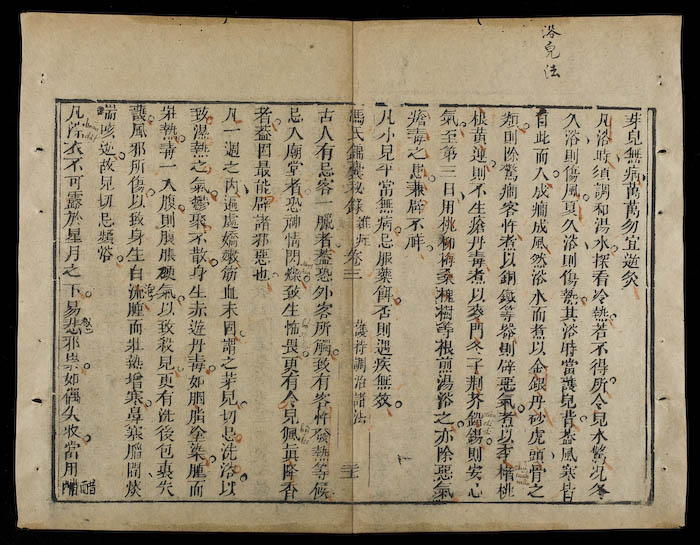 浴兒法
芽兒無病萬萬勿宜逆灸
凡浴時須調和湯水探看冷熱若不得所令兒水驚況冬
久浴則傷風夏久浴則傷熱其浴時當護兒背蓋風寒皆
自此而入成癇成風然浴水而煮以金銀丹砂虎頭骨之
類則除驚癇客忤煮以銅鐵等器則辟惡氣煮以李楮桃
根黃連則不生瘡丹毒煮以麥門冬子荊芥鉛錫則安心
氣至第三日用桃柳梅桑槐樹等根煎湯浴之亦除惡氣
瘡毒之患兼辟不祥
凡小兒平常無病忌服藥餌否則遇疾無效
馮氏錦囊秘錄 雜症卷三 護持調治諸法
古人有忌客一臘者蓋恐外客所觸致有客忤發熱等候
忌入廟堂者恐神情閃爍致生怖畏更有令兒佩真降香
者蓋因最能辟諸邪惡也
凡一週之內遍處嬌嫩筋血未固謂之芽兒切忌洗浴以
致濕熱之氣鬱聚不散身生赤遊丹毒如胭脂塗染腫而
壯熱毒一入腹則腹脹硬氣以致殺兒更有洗後包裹失
護風邪所傷以致身生白流腫而壯熱增寒鼻塞腦悶痰
喘咳逆故兒切忌頻浴
凡浣衣不可露於星月之下易惹邪祟如偶失收當用醋